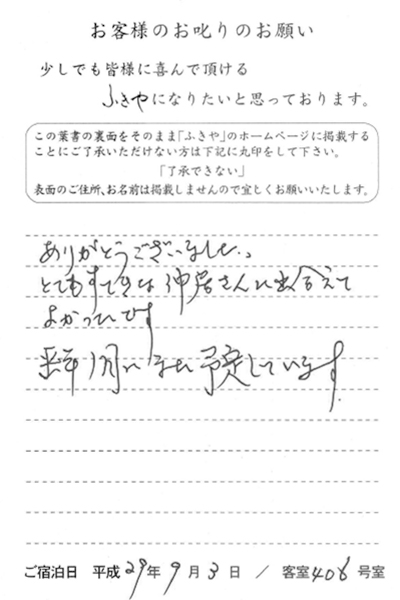 お客様のお叱りのお願い
少しでも皆様に喜んで頂ける
ふきやになりたいと思っております。
この葉書の裏面をそのまま「ふきや」のホームページに掲載する
ことにご了承いただけない方は下記に丸印をして下さい。
「了承できない」
表面のご住所、お名前は掲載しませんので宜しくお願いいたします。
ありがとうございました。
とてもすてきな仲居さんに出会えて
よかったです
来年1月にまた予定しています。
ご宿泊日 平成29年9月3日 / 客室408号室